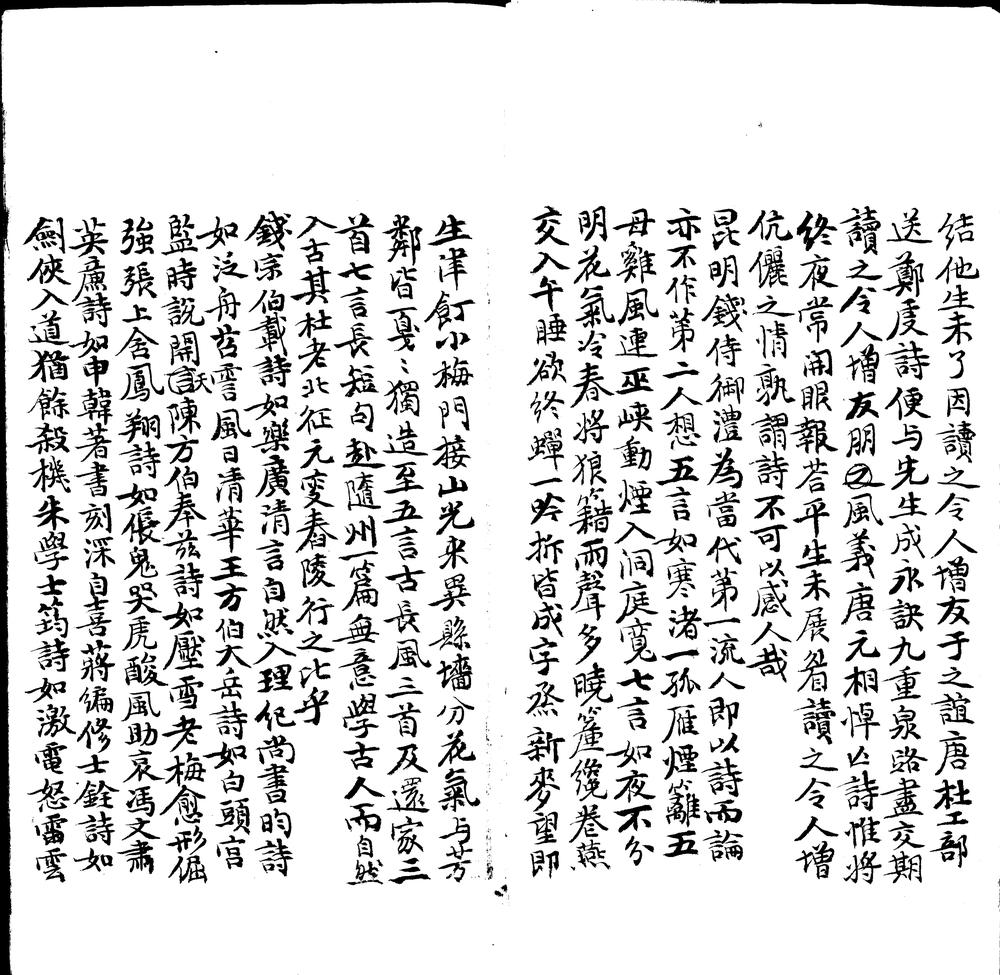 結他生未了因讀之令人增友于之誼唐杜工部
送鄭虔詩便与先生成永訣九重泉路盡交期
讀之令人增友朋之風義唐元相悼亡詩惟將
終夜常開眼報荅平生未展眉讀之令人增
伉儷之情孰謂詩不可以感人哉
昆明錢侍御澧為當代第一流人即以詩而論
亦不作第二人想五言如寒渚一孤雁煙籬五
母雞風連巫峽動煙入洞庭寬七言如夜不分
明花氣冷春將狼籍雨聲多曉簾纔卷燕
交入午睡欲終蟬一吟拆皆成字烝新麥望即
生津飣小梅門接山光来異縣墻分花氣与芳
鄰皆戛戛獨造至五言古長風三首及還家三
首七言長短句赴隨州一篇無意學古人而自然
入古其杜老北征元叟舂陵行之比乎
錢宗伯載詩如樂廣清言自然入理紀尚書昀詩
如泛舟苕霅風日清華王方伯太岳詩如白頭宮
監時說開天陳方伯奉兹詩如壓雪老梅愈形倔
強張上舍鳳翔詩如倀鬼哭虎酸風助哀馮文肅
英廉詩如申韓著書刻深自喜蔣編修士銓詩如
劍俠入道猶餘殺機朱學士筠詩如激電怒雷雲